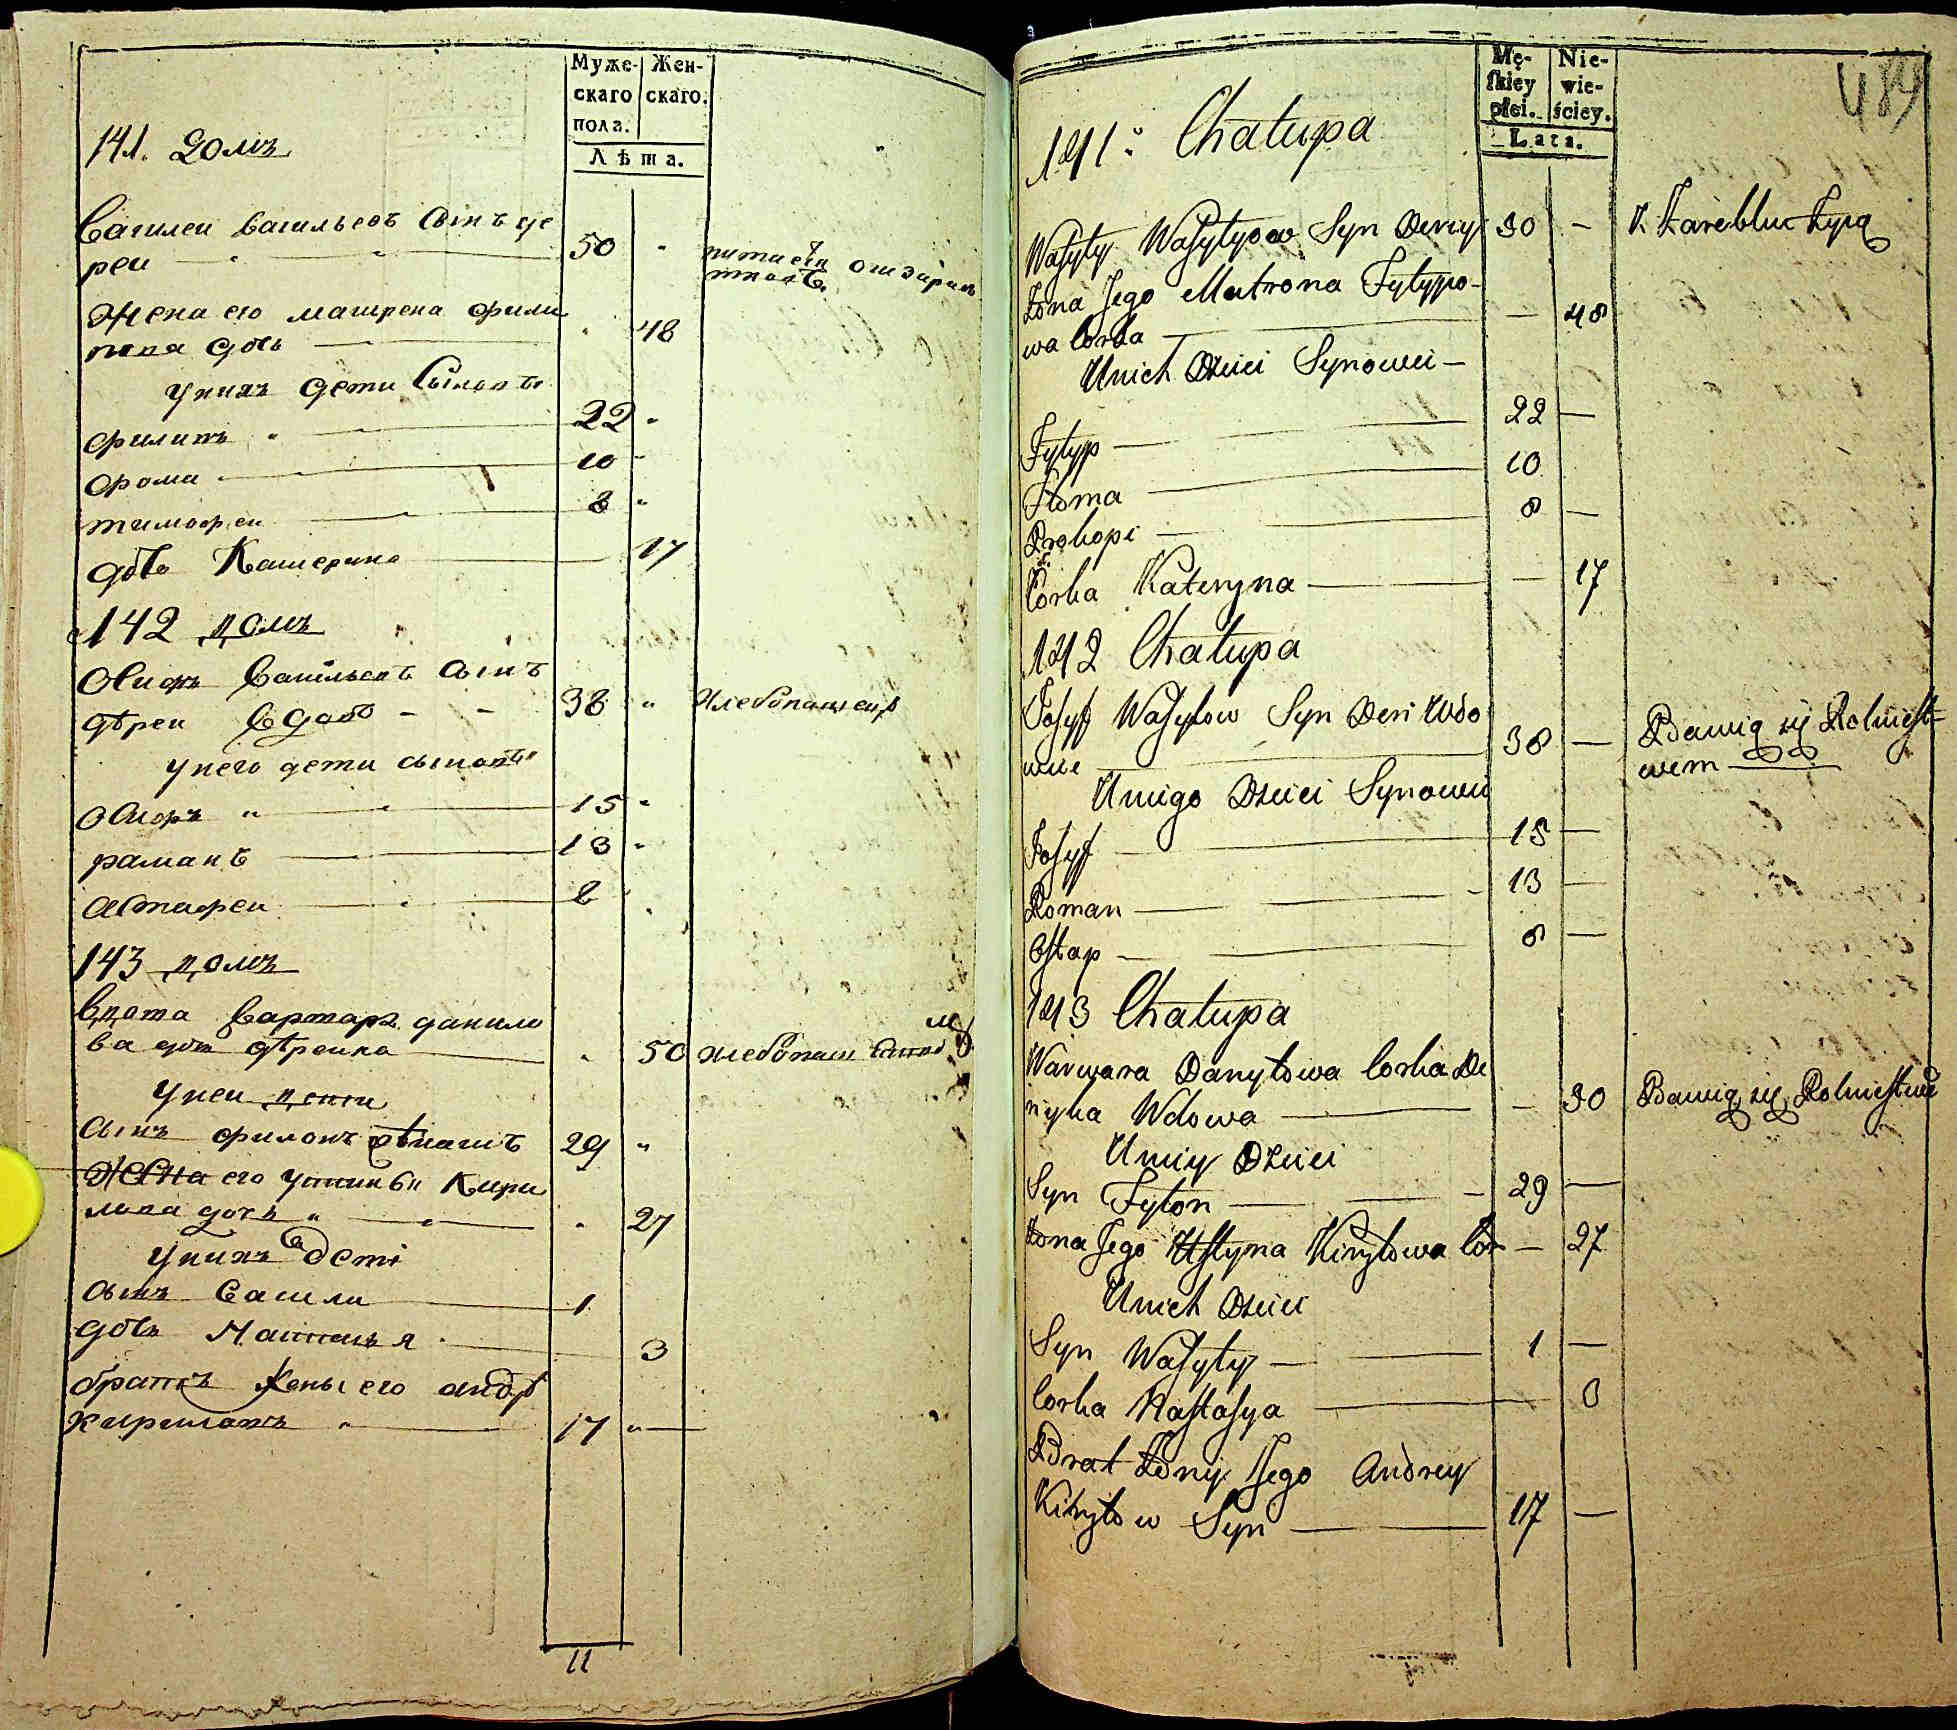 Муже- Жен-
скаго скаго.
пола.
Лѣта.
141. домъ
Василеи Васильевъ сынъ де
реи 50
жена его матрена фили
пова дочь 48
У нихъ дети сыновѣ
филипъ 22
фома 10
тимофеи 8
дочь Катерина 17
142 домъ
Осифъ Васильевъ сынъ
дѣреи вдовъ 38 хлебопашецъ
У него дети сыновѣ
Осифъ 15
раманъ 13
Астафеи 8
143 домъ
Вдова варвара данило
ва дочь дѣреика 50
У неи дети
сынъ филонъ 29
жена его устинья Кири
лова дочь 27
У нихъ дети
сынъ Васили 1
дочь Настасья 3
братъ жены его андрѣ
Кириловъ 17
11
Mę- Nie-
skiey wie-
płci. ściey.
Lata.
484
141. Chałupa
Wasyly Wasylyow Syn Derey 50 —
Żona Jego Matrona Fylypo-
wa Corka — 48
U nich Dzieci Synowei —
Fylyp 22 —
Foma 10
Prokopi 8 —
Córka Kateryna — 17
142 Chałupa
Josyf Wasylow Syn Deri Wdo
wie 38 — Bawią się Rolnićst-
wem
U niego Dzieci Synowei
Josyf 15 —
Roman 13 —
Ostap 8 —
143 Chałupa
Warwara Danyłowa Corka De
ryka Wdowa — 50 Bawią się Rolnićstwe
U niey Dzieci
Syn Fylon 29 —
Żona Jego Ustyna Kiryłowa Cór — 27
U nich Dzieci
Syn Wasyly 1 —
Corka Nastasya 3
Brat Żony Jego Andrey
Kiryłow Syn 17 —